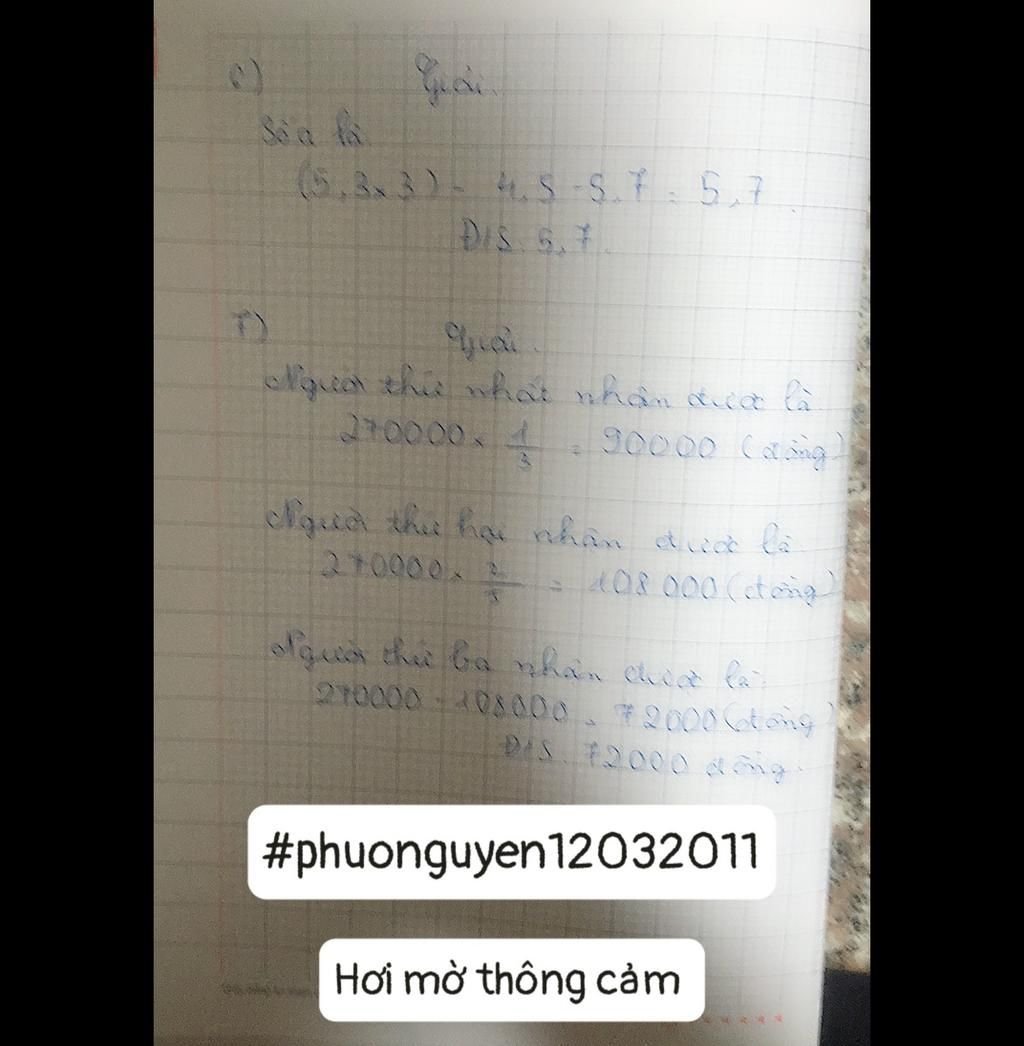 6) Giải.
Số a là
(5,3 x 3) - 4,5 - 5,7 = 5,7
Đ/S: 5,7.
7) Giải.
Người thứ nhất nhận được là
270000 x 1/3 = 90000 (đồng)
Người thứ hai nhận được là
270000 x 2/5 = 108 000 (đồng)
Người thứ ba nhận được là:
270000 - 108000 = 72000 (đồng)
Đ/S: 72000 đồng.
#phuonguyen12032011
Hơi mờ thông cảm